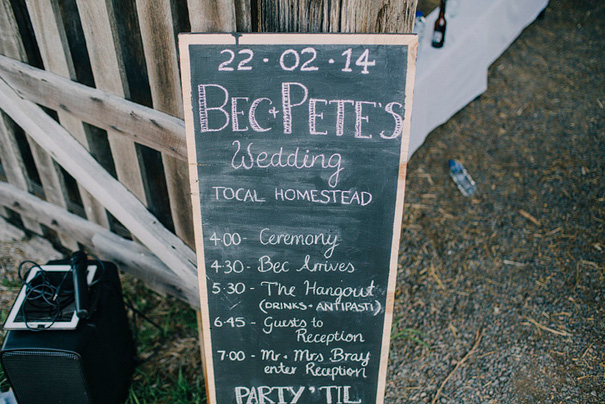 22·02·14
BEC + PETE'S
Wedding
TOCAL HOMESTEAD
4:00- Ceremony
4:30- Bec Arrives
5:30- The Hangout
(DRINKS + ANTIPASTI)
6:45- Guests to
Reception
7:00- Mr + Mrs Bray
enter Reception
PARTY 'TIL